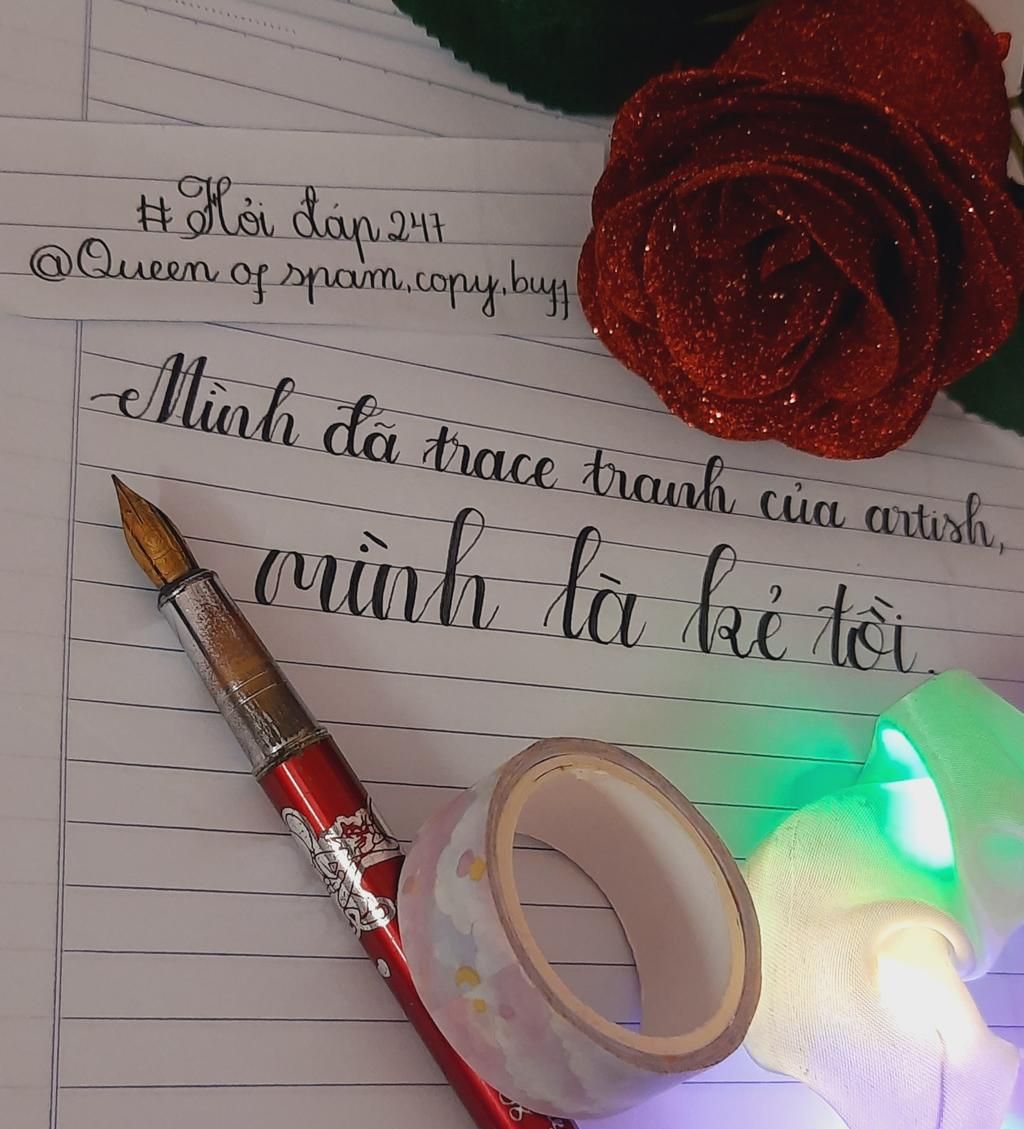 #Hỏi đáp 247
@Queen of spam,copy,buff
Mình đã trace tranh của artish,
mình là kẻ tồi.